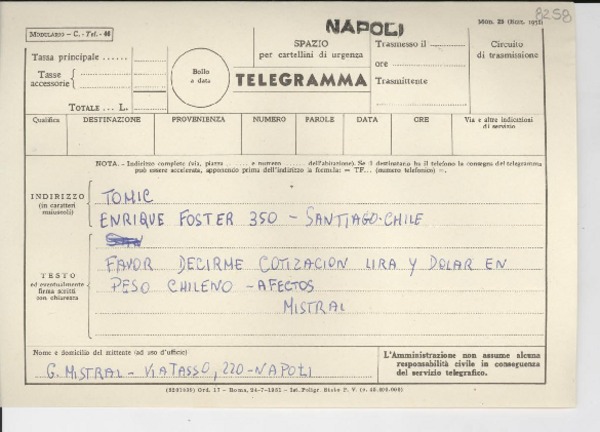 8258
MODULARIO - C. - Tel. - 46
NAPOLI
Mod. 25 (Ediz. 1951)
Tassa principale
Tasse
accessorie
TOTALE . . . L.
Bollo
a data
SPAZIO
per cartellini di urgenza
TELEGRAMMA
Trasmesso il
ore
Trasmittente
Circuito
di trasmissione
Qualifica
DESTINAZIONE
PROVENIENZA
NUMERO
PAROLE
DATA
ORE
Via e altre indicazioni
di servizio
NOTA. - Indirizzo completo (via, piazza . . . . . . . e numero . . . . . . . dell'abitazione). Se il destinatario ha il telefono la consegna del telegramma
può essere accelerata, apponendo prima dell'indirizzo la formula: = TF... (numero telefonico) =.
INDIRIZZO
(in caratteri
maiuscoli)
TOMIC
ENRIQUE FOSTER 350 - SANTIAGO-CHILE
TESTO
ed eventualmente
firma scritti
con chiarezza
FAVOR DECIRME COTIZACION LIRA Y DOLAR EN
PESO CHILENO - AFECTOS
MISTRAL
Nome e domicilio del mittente (ad uso d'ufficio)
G. MISTRAL - VIA TASSO, 220 - NAPOLI
L'Amministrazione non assume alcuna
responsabilità civile in conseguenza
del servizio telegrafico.
Ord. 17 - Roma, 24-7-1951 - Ist. Poligr. Stato P. V.